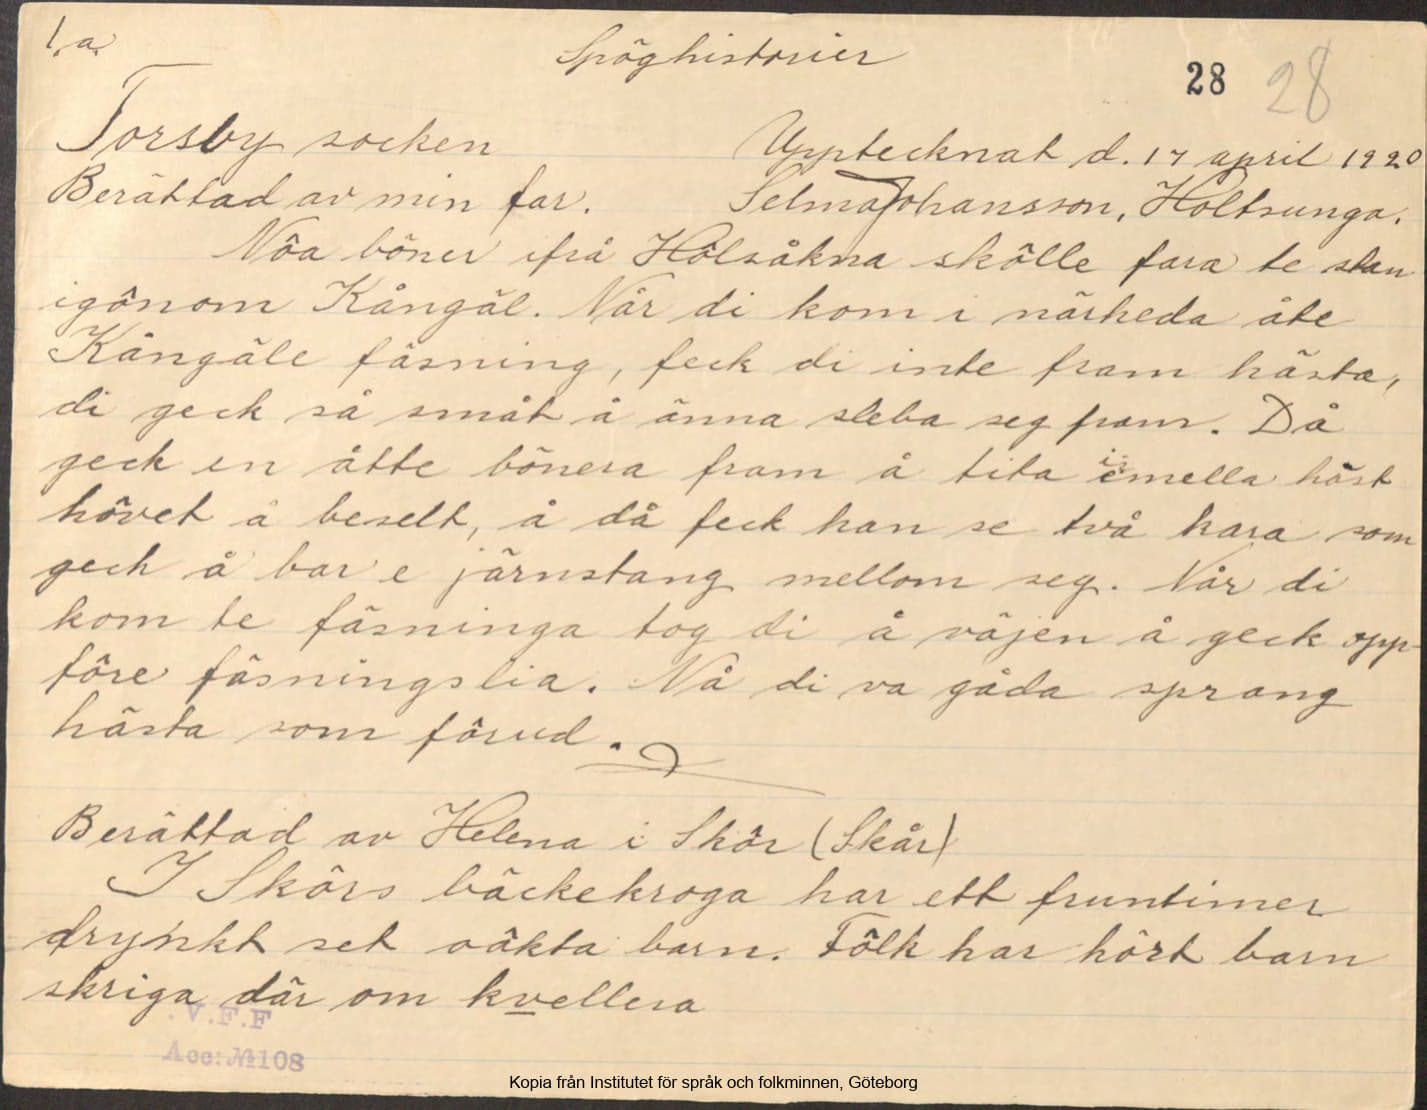 1.a.
Spöghistorier
28 28
Torsby socken
Upptecknat d. 17 april 1920
Berättad av min far.
Selma Johansson, Holtsunga.
Nôa böner ifrå Hôlsåkna skôlle fara te stan
igônom Kångäl. Når di kom i närheda åte
Kångäle fäsning, feck di inte fram hästa,
di geck så småt å änna sleba seg fram. Då
geck en åtte bönera fram å tita imella häst
hôvet å beselt, å då feck han se två kara som
geck å bar e järnstang mellom seg. Når di
kom te fäsninga tog di å väjen å geck opp-
fôre fäsningslia. Nå di va gåda sprang
hästa som fôrud.
Berättad av Helena i Skôr (Skår)
I Skôrs bäckekroga har ett fruntimer
drynkt set oäkta barn. Fôlk har hôrt barn
skriga där om kvellera
.V.F.F
Acc: №108
Kopia från Institutet för språk och folkminnen, Göteborg